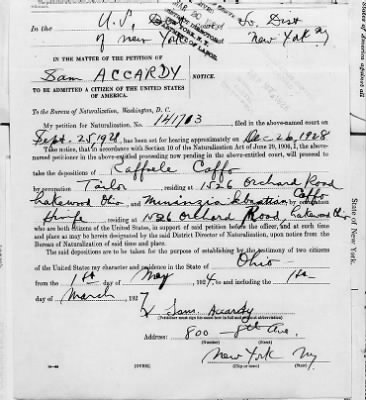 In the U.S. So. Dist
of New York New York NY
IN THE MATTER OF THE PETITION OF
Sam ACCARDY NOTICE.
TO BE ADMITTED A CITIZEN OF THE UNITED STATES
OF AMERICA.
To the Bureau of Naturalization, Washington, D. C.
My petition for Naturalization, No. 141703 filed in the above-named court on
Sept. 25, 1928, has been set for hearing approximately on Dec. 26, 1928
Take notice, that in accordance with Section 10 of the Naturalization Act of June 29, 1906, I, the above-
named petitioner in the above-entitled proceeding now pending in the above-entitled court, will proceed to
take the depositions of Raffaele Caffo
by occupation Tailor residing at 1526 Orchard Road
Lakewood Ohio and Caffo by occupation
residing at 1526 Orchard Road, Lakewood Ohio
who are both citizens of the United States, in support of said petition before the officer, and at such time
and place as may be herein designated by the said District Director of Naturalization, upon notice from the
Bureau of Naturalization of said time and place.
The said depositions are to be taken for the purpose of establishing by the testimony of two citizens
of the United States my character and residence in the State of Ohio
from the 1st day of May, 1924, to and including the 1st
day of March, 1927
Sam Accardy
(Petitioner must sign his name here in full and without abbreviation)
Address: 800 8th Ave.
(Number) (Street)
New York NY
(City or town) (State)
State of New York.